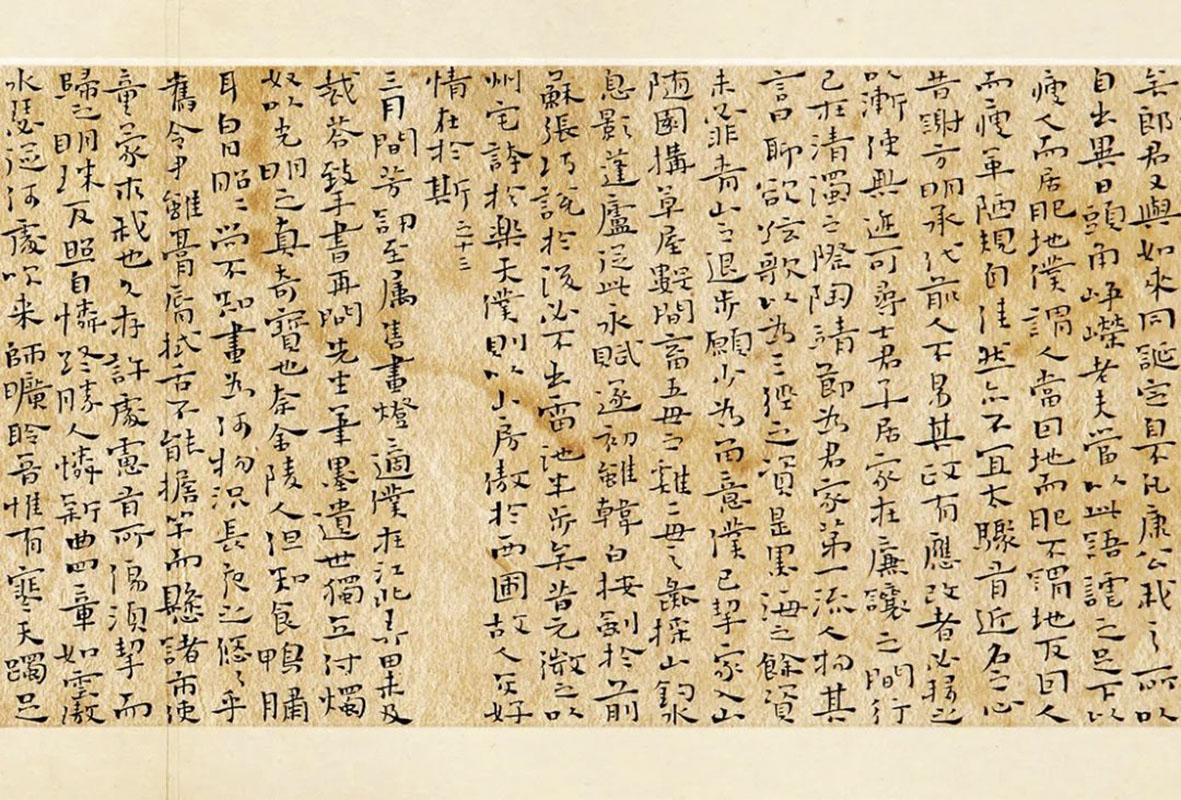 矣郎君又與如來同誕定自不凡康公我之所以
自出異日頭角崢嶸老夫當以此語謔之足下以
瘦人而居肥地僕謂人當因地而肥不謂地反因人
而瘦革陋規自佳然亦不宜太驟有近名之心
昔謝方明承代前人不易其政有應改者必移之
以漸使無迹可尋士君子居家在廉讓之間行
己在清濁之際陶靖節為君家第一流人物其
言曰聊欲弦歌以為三徑之資是墨海之餘資
未必非青山之退步願少為留意僕已挈家入山
随園搆草屋數間畜五母之雞二母之彘採山釣水
息影蓬廬從此永賦遂初雖韓白按劍於前
蘇張巧說於後必不出雷池半步矣昔元微之以
州宅誇於樂天僕則以山房傲於西圃故人久好
情在於斯 二十三
三月間芳訊至属售畫燈適僕在江北未及
裁荅致手書再問先生筆墨遺世獨立付燭
奴以光明之真奇寶也奈金陵人但知食鴨臛
耳白日昭昭尚不知畫為何物況長夜之悠悠乎
舊令尹雖膏唇拭舌不能擔竿而懸諸市使
童蒙求我也久存許處慮有所傷須挈而
歸之明珠反照自憐終勝人憐新曲四章如雲璈
水瑟從何處吹来師曠聆音惟有寒天躅足